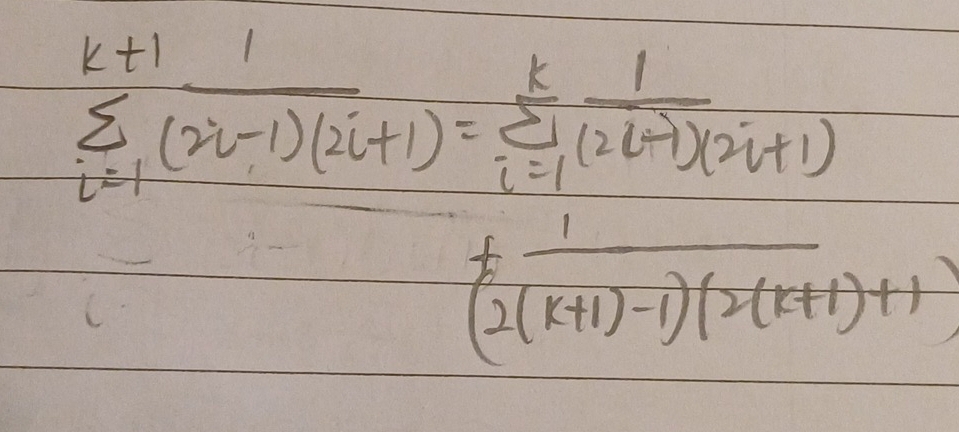 \sum_{i=1}^{k+1} \frac{1}{(2i-1)(2i+1)} = \sum_{i=1}^{k} \frac{1}{(2i-1)(2i+1)}
+ \frac{1}{(2(k+1)-1)(2(k+1)+1)}